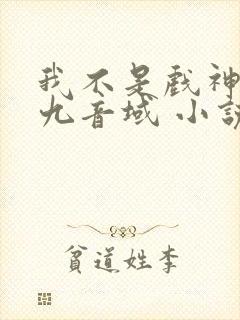 我不是戲神
九音域 小說
貧道姓李